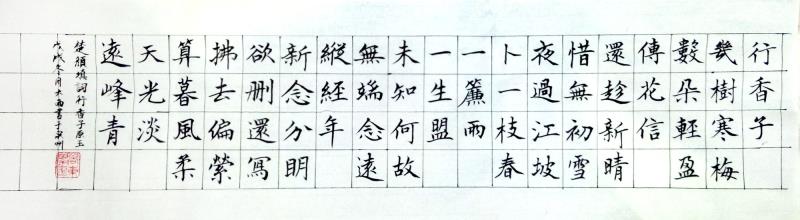 行香子
幾樹寒梅
數朵輕盈
傳花信
還趁新晴
惜無初雪
夜過江坡
卜一枝春
一簾雨
一生盟
未知何故
無端念遠
縱經年
新念分明
欲刪還寫
拂去偏縈
算暮風柔
天光淡
遠峰青
楚頎填詞行香子原玉
戊戌冬月大雨書于泉州